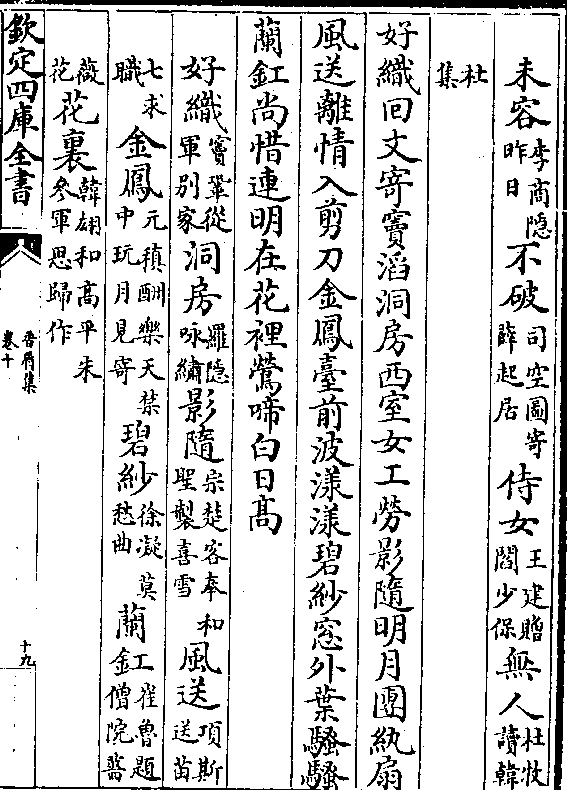 未容李商隐昨日不破司空圖寄薛起居侍女王建贈閻少保無人杜牧讀韓
杜集
好織回文寄竇滔洞房西室女工勞影隨明月團紈扇
風送離情入剪刀金鳳臺前波漾漾碧紗窓外葉騷騷
蘭釭尚惜連明在花裡鶯啼白日髙
好織竇鞏從軍别家洞房羅隱咏繡影隨宗楚客奉和聖製喜雪風送項斯送苗
七求職金鳳元稹酬樂天禁中玩月見寄碧紗徐凝莫愁曲蘭釭崔魯題僧院
薇花花裏韓翃和高平朱參軍思歸作
欽定四庫全書
香屑集
卷十
十九